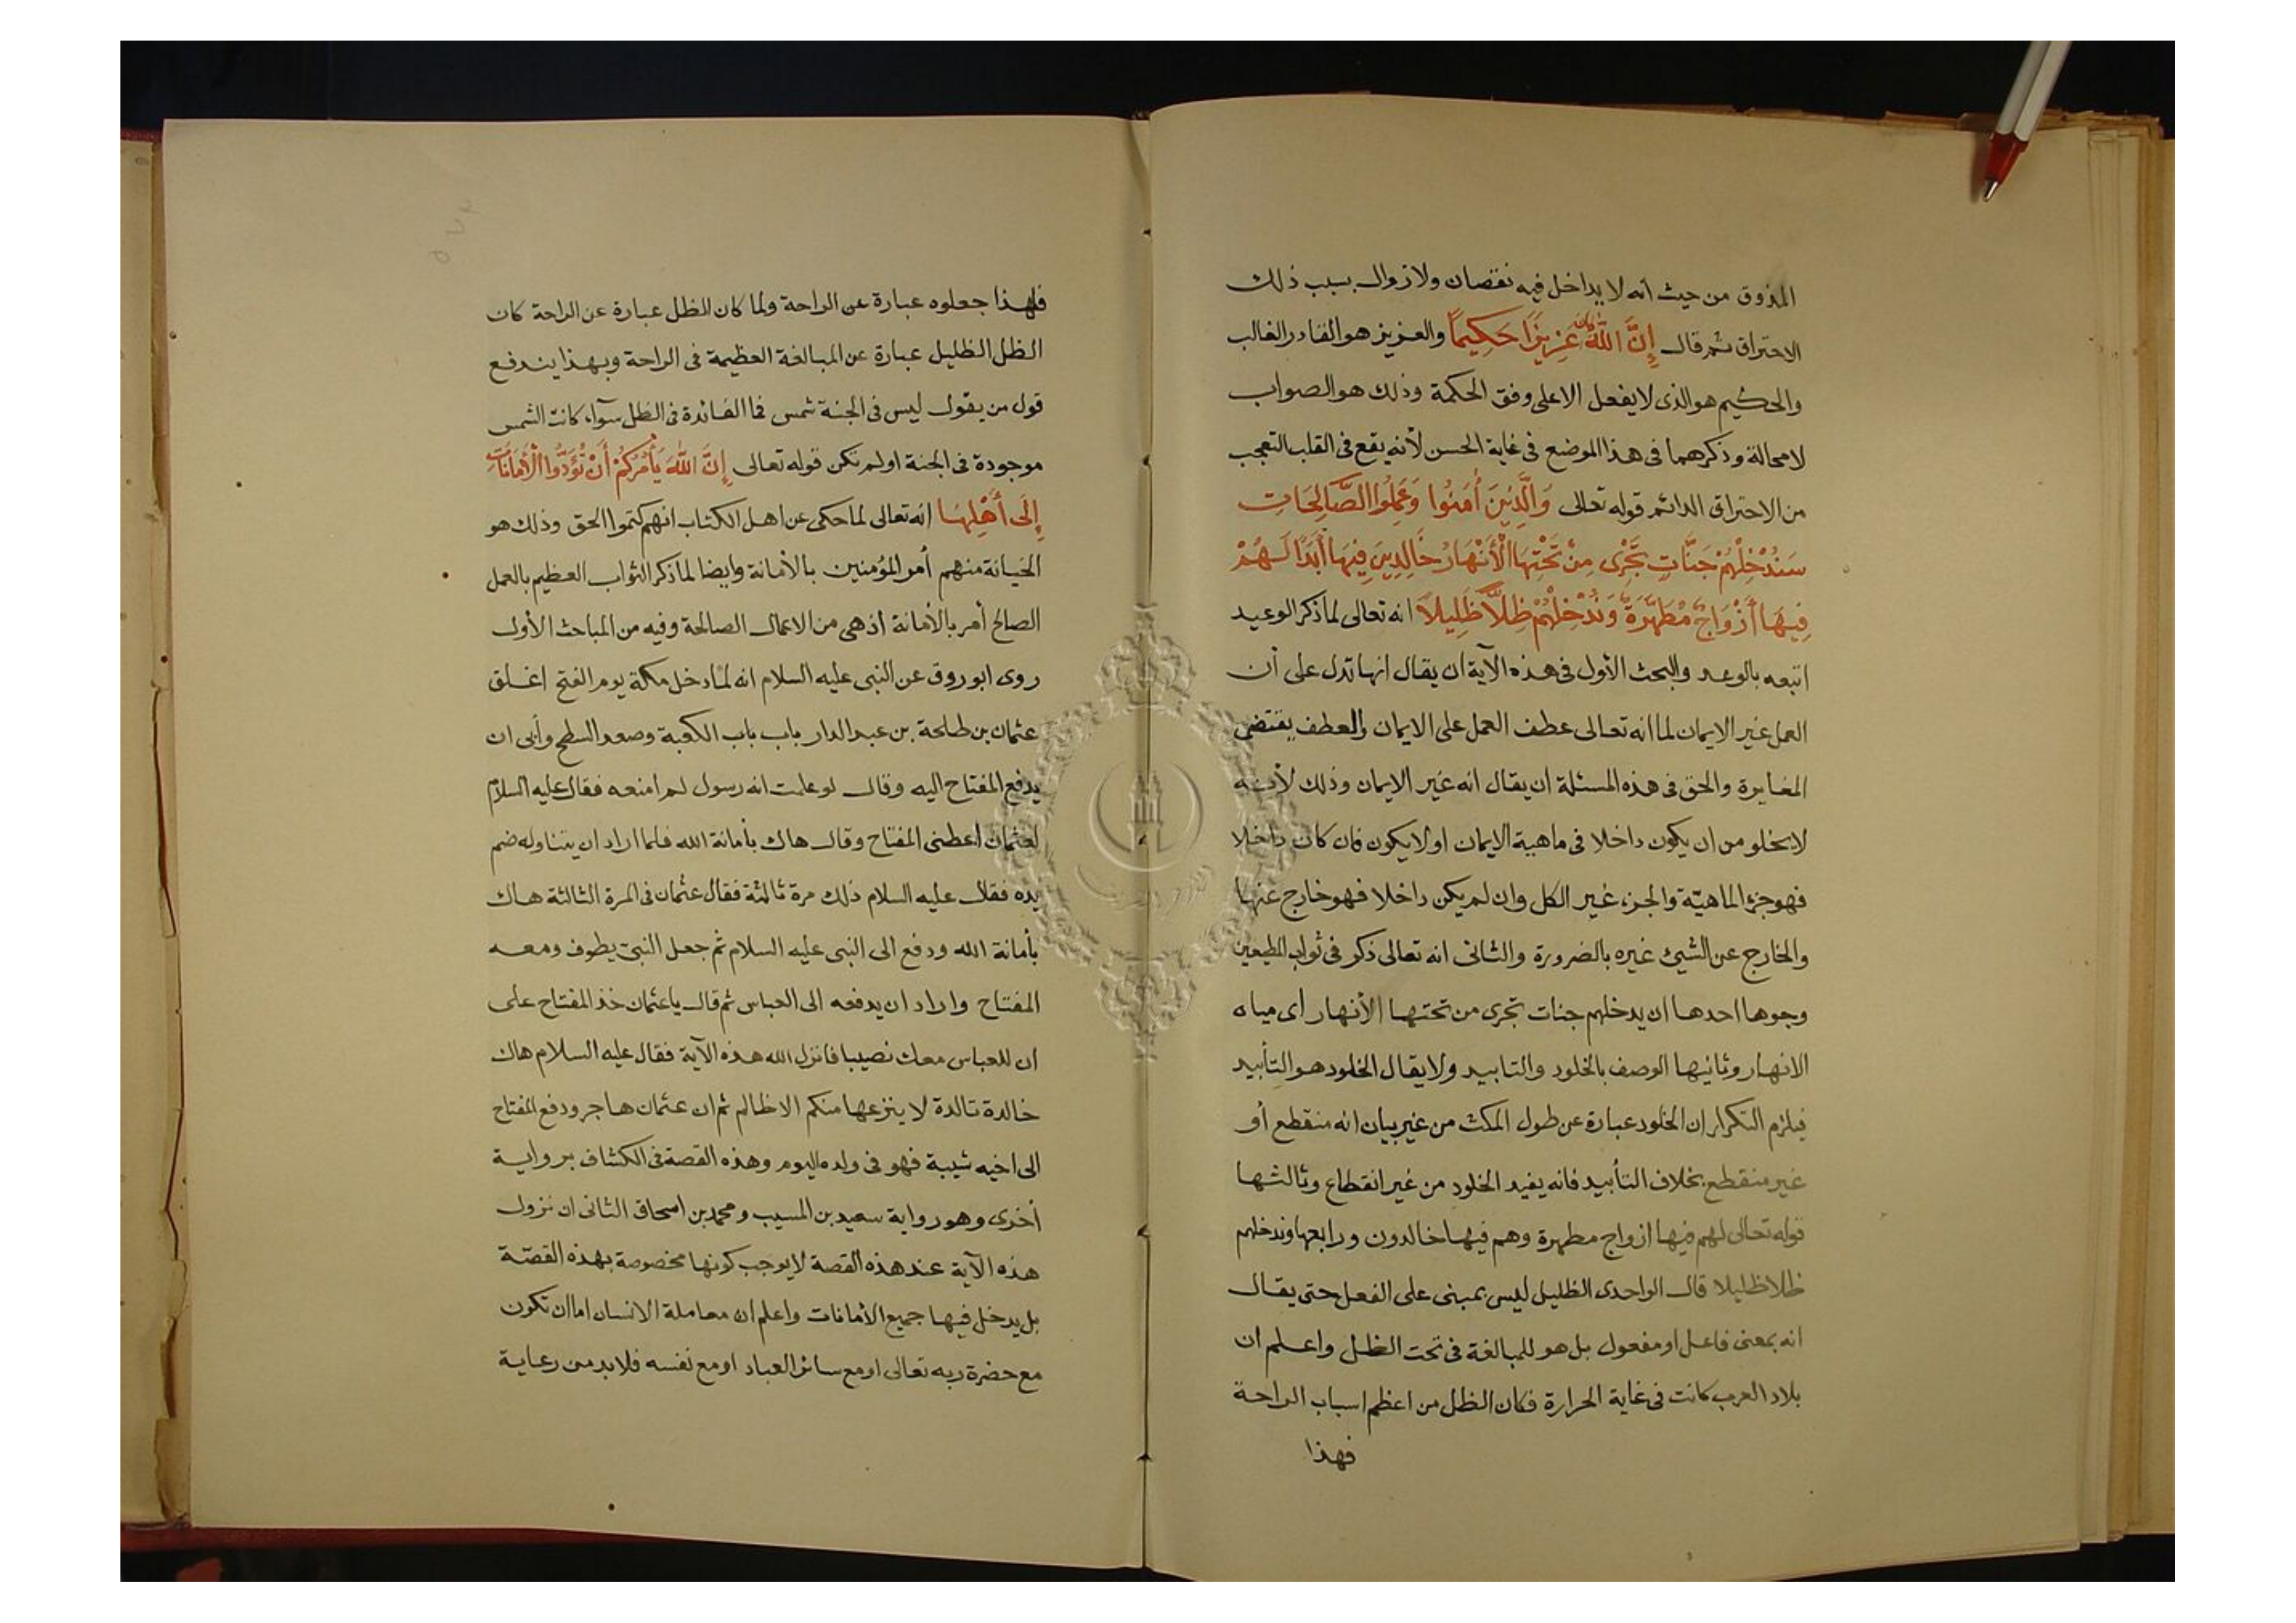 المذوق من حيث انه لا يداخل فيه نقصان ولا زوال بسبب ذلك
الاحتراق ثم قال إِنَّ اللَّهَ كَانَ عَزِيزًا حَكِيمًا والعزيز هو القادر الغالب
والحكيم هو الذى لا يفعل الا على وفق الحكمة وذلك هو الصواب
لا محالة وذكرهما فى هذا الموضع فى غاية الحسن لأنه يقع فى القلب التعجب
من الاحتراق الدائم قوله تعالى وَالَّذِينَ أٰمَنُوا وَعَمِلُوا الصَّالِحَاتِ
سَنُدْخِلُهُمْ جَنَّاتٍ تَجْرِى مِنْ تَحْتِهَا الْأَنْهَارُ خَالِدِينَ فِيهَا أَبَدًا لَهُمْ
فِيهَا أَزْوَاجٌ مُطَهَّرَةٌ وَنُدْخِلُهُمْ ظِلًّا ظَلِيلاً انه تعالى لما ذكر الوعيد
اتبعه بالوعد والبحث الأول فى هذه الآية ان يقال انها تدل على أن
العمل غير الايمان لما انه تعالى عطف العمل على الايمان والعطف يقتضى
المغايرة والحق فى هذه المسئلة ان يقال انه غير الايمان وذلك لأنه
لا يخلو من ان يكون داخلا فى ماهية الايمان او لا يكون فان كان داخلا
فهو جزء الماهيّة والجزء غير الكل وان لم يكن داخلا فهو خارج عنها
والخارج عن الشيئ غيره بالضرورة والثانى انه تعالى ذكر فى ثواب المطيعين
وجوها احدها ان يدخلهم جنات تجرى من تحتها الأنهار أى مياه
الانهار وثانيها الوصف بالخلود والتابيد ولا يقال الخلود هو التأبيد
فيلزم التكرار ان الخلود عبارة عن طول المكث من غير بيان انه منقطع أو
غير منقطع بخلاف التأبيد فانه يفيد الخلود من غير انقطاع وثالثها
قوله تعالى لهم فيها ازواج مطهرة وهم فيها خالدون ورابعها وندخلهم
ظلا ظليلا قال الواحدى الظليل ليس بمبنى على الفعل حتى يقال
انه بمعنى فاعل او مفعول بل هو للمبالغة فى تحت الظل واعلم ان
بلاد العرب كانت فى غاية الحرارة فكان الظل من اعظم اسباب الراحة
فهذا
فلهذا جعلوه عبارة عن الراحة ولما كان الظل عبارة عن الراحة كان
الظل الظليل عبارة عن المبالغة العظيمة فى الراحة وبهذا يندفع
قول من يقول ليس فى الجنة شمس فما الفائدة فى الظل سوآء كانت الشمس
موجودة فى الجنة او لم تكن قوله تعالى إِنَّ اللَّهَ يَأْمُرُكُمْ أَنْ تُؤَدُّوا الْأَمَانَاتِ
إِلَى أَهْلِهَا انه تعالى لما حكى عن اهل الكتاب انهم كتموا الحق وذلك هو
الخيانة منهم أمر المؤمنين بالأمانة وايضا لما ذكر الثواب العظيم بالعمل
الصالح أمر بالأمانة اذ هى من الاعمال الصالحة وفيه من المباحث الأول
روى ابو روق عن النبى عليه السلام انه لما دخل مكة يوم الفتح اغلق
عثمان بن طلحة بن عبد الدار باب باب الكعبة وصعد السطح وأبى ان
يدفع المفتاح اليه وقال لو علمت انه رسول لم امنعه فقال عليه السلام
لعثمان اعطنى المفتاح وقال هاك بأمانة الله فلما اراد ان يتناوله ضم
يده فقال عليه السلام ذلك مرة ثالثة فقال عثمان فى المرة الثالثة هاك
بأمانة الله ودفع الى النبى عليه السلام ثم جعل النبىّ يطوف ومعه
المفتاح واراد ان يدفعه الى العباس ثم قال يا عثمان خذ المفتاح على
ان للعباس معك نصيبا فانزل الله هذه الآية فقال عليه السلام هاك
خالدة تالدة لا ينزعها منكم الا ظالم ثم ان عثمان هاجر ودفع المفتاح
الى اخيه شيبة فهو فى ولده اليوم وهذه القصة فى الكشاف برواية
أخرى وهو رواية سعيد بن المسيب ومحمد بن اسحاق الثانى ان نزول
هذه الآية عند هذه القصة لا يوجب كونها مخصوصة بهذه القصّة
بل يدخل فيها جميع الأمانات واعلم ان معاملة الانسان اما ان تكون
مع حضرة ربه تعالى او مع سائر العباد او مع نفسه فلا بد من رعاية